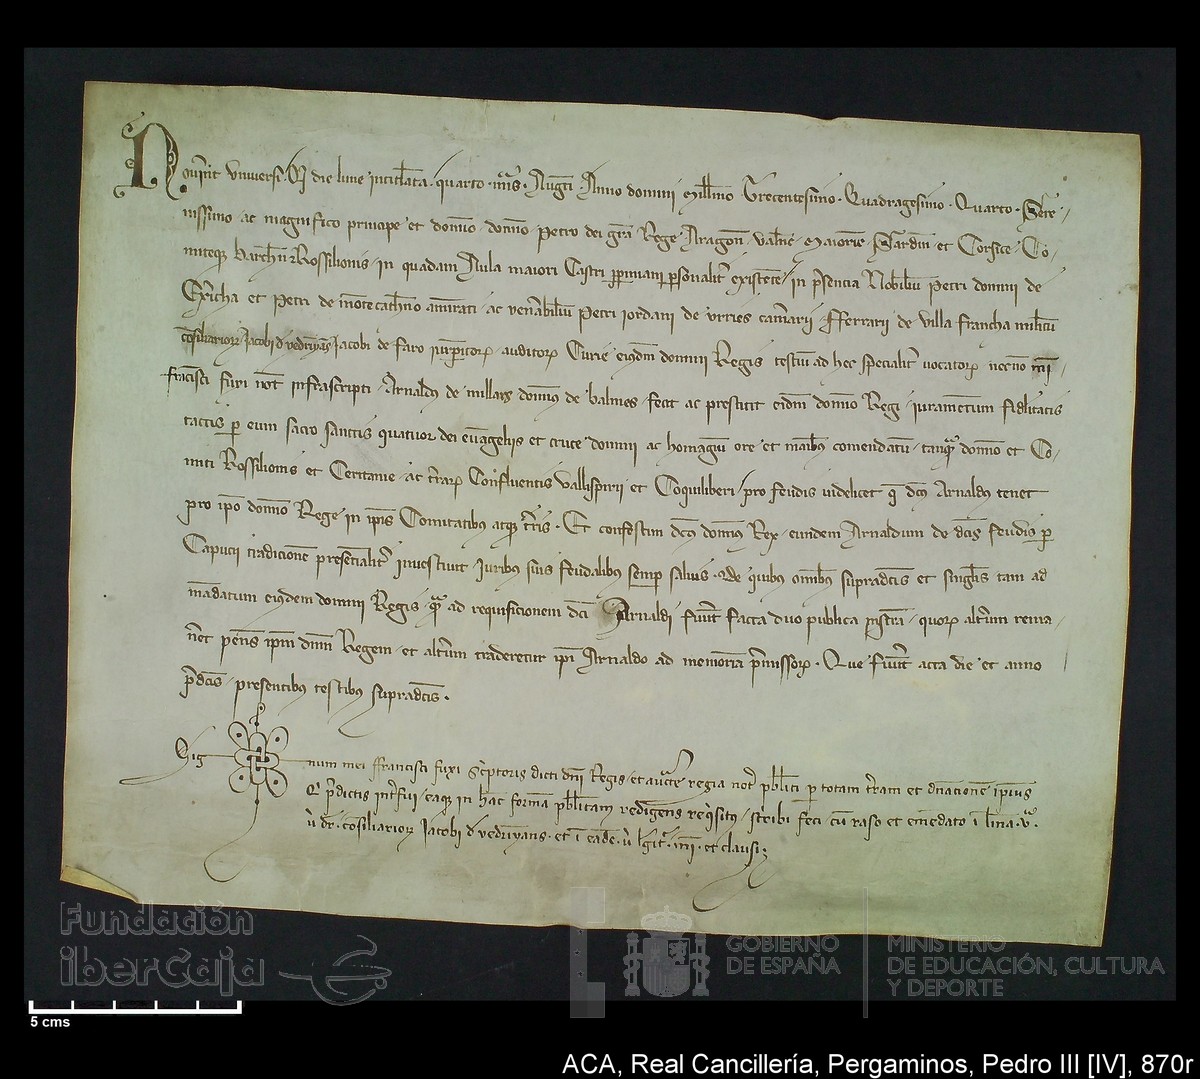 Nov̄int Universi. Qd̄ die lune intitl̄ata. quarto. m̄s. Augti. Anno domini Mill̄mo Trecentesimo. Quadragesimo. Quarto. Sere-
nissimo ac magnifico principe et domīo domīo Petro dei gr̄a Rege Aragon̄. Valn̄c̄. Maioric̄. Sardin̄. et Corsice. Co-
miteqȝ Barch̄n. Rossilionis. in quadam Aula maiori Castri p̄piniani p̄sonalit̄ existēte. in p̄sencia Nobiliū Petri domini de
Ex̄icha et Petri de mōtecatheno amirati. ac ven̄abiliū Petri iordani de urries cam̄arii. fferrarii de villa francha militū
cōsiliarioꝝ Jacobi de faro iurispitoꝝ. auditoꝝ Curie eiusdm̄ domini Regis testiū ad hec specialit̄ vocatoꝝ necnō mei
francisci fuxi not̄ infrascripti. Arnaldus de millars domīus de balmes. fecit ac prestitit eidm̄ domīo Regi. iuramentum fidlitatis
tactis p̱ eum sacro sanctis quatuor dei euāgeliis et cruce domini ac homagiū ore et maibus comendatū. tanq̄ᵃ domīo et Co-
miti Rossilionis et Ceritanie. ac t̄raꝝ Confluentis vallispirii et Coquiliberi. pro feudis videlicet q̄ dc̄us Arnaldus tenet
pro ip̄o domīo Rege in ip̄is Comitatibus atqȝ t̄ris. Et confestim dc̄us domīus Rex. eundem Arnaldum de dc̄is feudis p̱
Capucii tradicionē presencialit̄ investivit. iuribus suis feudalibus semp̱ salvis. De quibus om̄ibus supradc̄is et singlis tam ad
mādatum eiusdem domini Regis. q̄ᵃ ad requisicionem dc̄i Arnaldi fuer̄t facta duo publica īstra. quoꝝ alt̄um rema-
net̄ penes ip̄m dn̄m Regem. et alt̄um traderetur ip̄i Arnaldo ad memoriā p̄missoꝝ. Que fuer̄t acta die et anno
p̄dc̄is. presentibus testibus supradc̄is.
Sig
num mei ffrancisci fuxi Sc̄ptoris dicti dn̄i Regis. et auct̄e regia not̄ pb̄lici p̱ totam t̄ram et dn̄acionē ip̄ius
Qⁱ p̄dictis int̄fui. eaqȝ in hāc formā pb̄licam redigens req̄situs. scribi feci cū raso et emēdato ī lin̄a. v.ᵃ
u̇ dr̄. cōsiliarioꝝ Jacobi et ī eadē. u̇ mei. et clausi.
Fundación
iberCaja
GOBIERNO
DE ESPAÑA
MINISTERIO
DE EDUCACIÓN, CULTURA
Y DEPORTE
5 cms
ACA, Real Cancillería, Pergaminos, Pedro III [IV], 870r